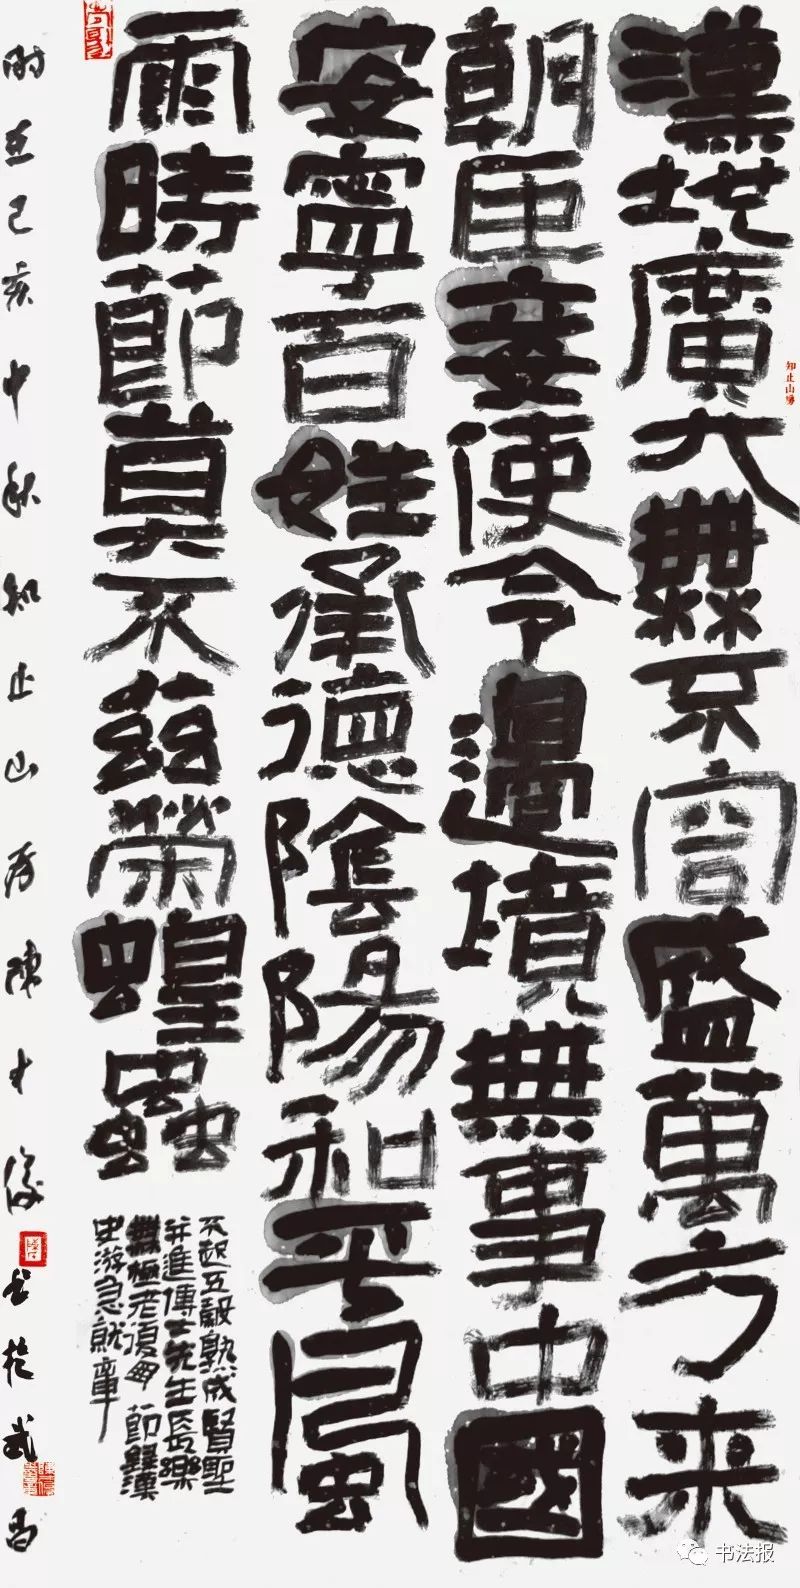 漢地廣大無不容盛萬方来
朝臣妾使令邊境無事中國
安寧百姓承德陰陽和平風
雨時節莫不茲榮蝗蟲
不起五穀熟成賢聖
并進博士先生長樂
無極老復丁 節録漢
史游急就章
时在己亥中秋知止山房陳才俊书於武昌
知止山房
书法报